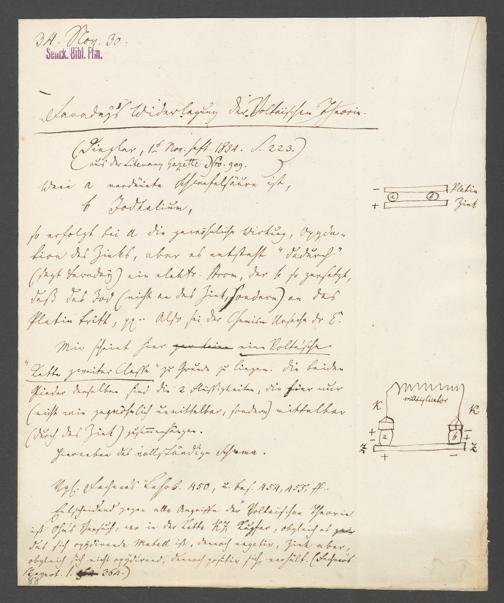 34. Nov. 30.
Senck. Bibl. Ffm.
Faradays Widerlegung der Voltaischen Theorie.
(Dingler, 1t Nov. heft. 1834. S. 223.)
(aus der Literary Gazette No. 909.
Wenn a verdünnte Schwefelsäure ist,
b Jodkalium,
so erfolgt bei a die gewöhnliche Wirkung, Oxyda-
tion des Zinks, aber es entsteht "dadurch"
(sagt Faraday) ein elektr. Strom, der b so zersetzt,
daß das Jod (nicht an das Zink, sondern) an das
Platin tritt, pp. Also sei der Chemism Ursache der E.
Mir scheint hier eine Voltaische
"Kette zweiter Classe" zu Grunde zu liegen. Die beiden
Glieder derselben sind die 2 Flüssigkeiten, die hier nur
(nicht wie gewöhnlich unmittelbar, sondern) mittelbar
(durch das Zink) zusammenhängen.
Hierneben das vollständige Schema.
Vgl. Fechners Lehrb. 450, 2. bes. 454, 455, ff.
Entscheidend gegen alle Angriffe der Voltaischen Theorie
ist Versuch, wo in der Kette KZ Kupfer, obgleich es
das sich oxydirende Metall ist, dennoch negativ, Zink aber,
obgleich sich nicht oxydirend, dennoch positiv sich verhält. (Fechners
Repert. 1. 364.)
88
- Platin
a b
+ Zink
Multiplicator
K K
+ +
- a b -
Z Z
+ -